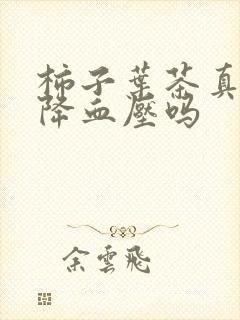 柿子葉茶真
降血壓嗎
余雲飛